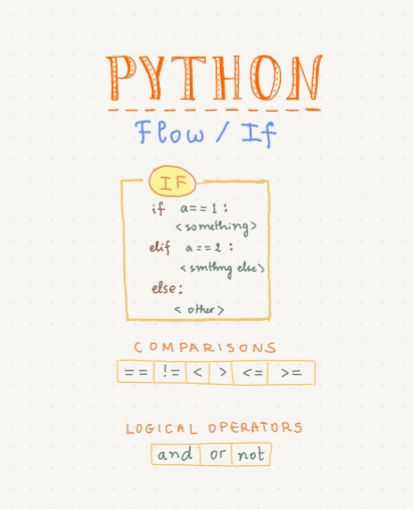 PYTHON
Flow / If
IF
if a == 1 :
<something>
elif a == 2 :
<smthng else>
else:
<other>
COMPARISONS
== != < > <= >=
LOGICAL OPERATORS
and or not